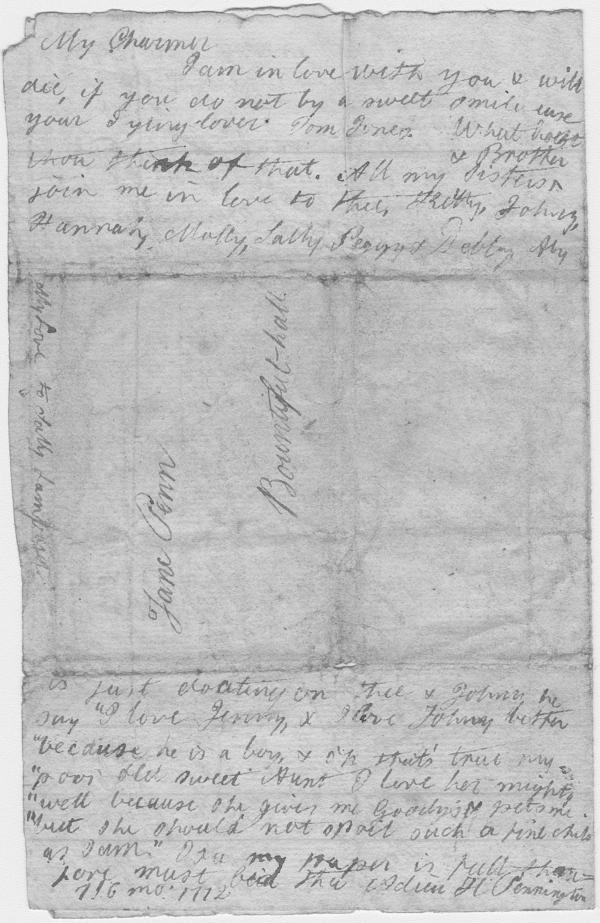 My Charmer
I am in love with you & will
die, if you do not by a sweet smile ease
your dying lover Tom Jones. What
thou think of that. All my Sisters
& Brother
join me in love to thee, Kitty, Johny,
Hannah, Molly, Sally Peggy & Debby, My
My love to Sally
Jane Penn
Bountiful-hall
is just doating on thee & Johny, he
say "I love Jenny, & I love Johny better
"because he is a boy, & oh that's true my
"poor old sweet Aunt I love her mighty
"well because she gives me Goodys & pets me
"but she should not spoil such a fine child
as I am." my paper is full there-
fore must bid thee Adieu H Pennington
6 mo. 1772